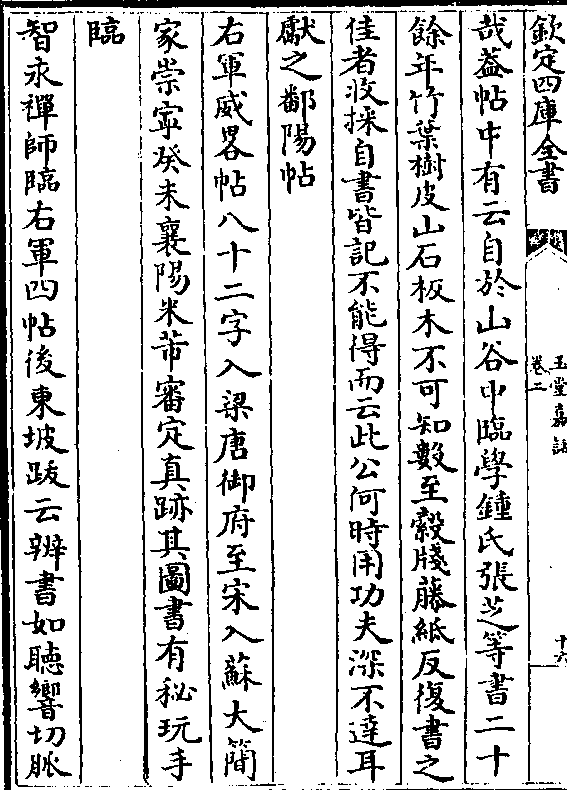 欽定四庫全書
玉堂嘉話
卷二
十六
哉葢帖中有云自於山谷中臨學鍾氏張芝等書二十
餘年竹葉樹皮山石板木不可知數至縠牋藤紙反復書之
佳者收採自書皆記不能得而云此公何時用功夫深不達耳
獻之鄱陽帖
右軍威畧帖八十二字入梁唐御府至宋入蘇大簡
家崇寧癸未襄陽米芾審定真跡其圖書有秘玩手
臨
智永禪師臨右軍四帖後東坡跋云辨書如聽響切脈